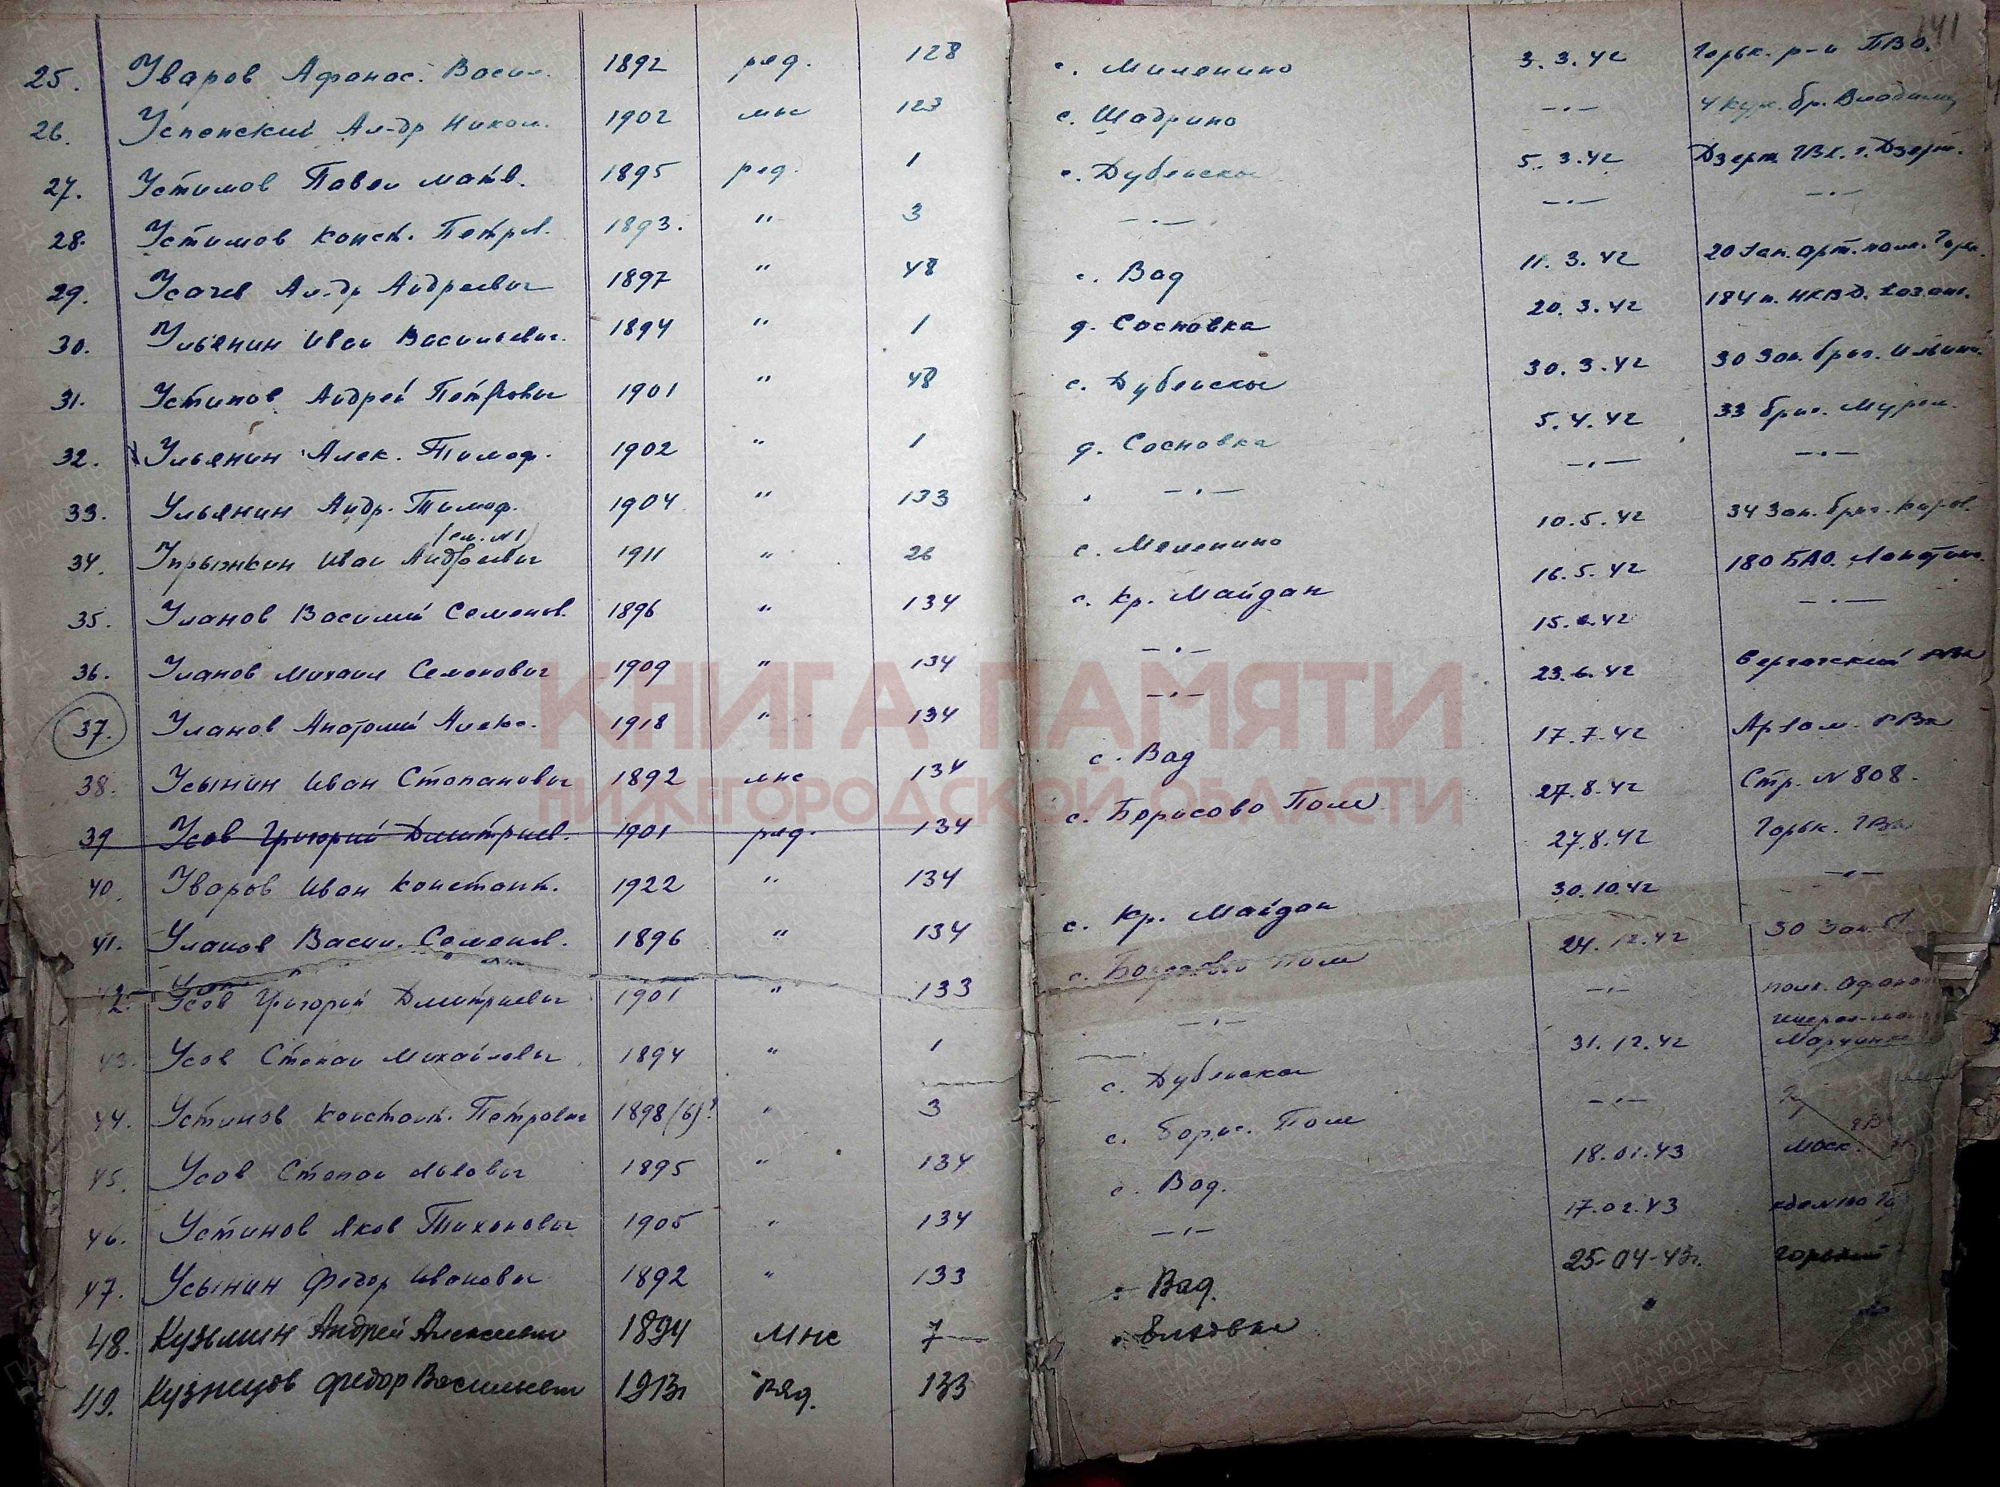 141
25. Уваров Афонас. Васил. 1892 ряд. 128 с. Миленино 3.3.42 Горьк. р-н ПВО.
26. Успенский Ал-др Никол. 1902 мнс 123 с. Шадрино —•— 4 кур. бр. Владимир
27. Устимов Павел Матв. 1895 ряд. 1 с. Дубенское 5.3.42 Дзерж. ГВК. г. Дзерж.
28. Устимов Конст. Петров. 1893. " 3 —•— —•— —•—
29. Усачев Ал-др Андреевич 1897 " 48 с. Вад 11.3.42 20 Зап. арт. полк. Горьк.
30. Ульянин Иван Васильевич. 1894 " 1 д. Сосновка 20.3.42 184 п. НКВД. Казань.
31. Устинов Андрей Петрович 1901 " 48 с. Дубенское 30.3.42 30 Зап. бриг. Ильино
32. Ульянин Алек. Тимоф. 1902 " 1 д. Сосновка 5.4.42 33 бриг. Муром.
33. Ульянин Андр. Тимоф. 1904 " 133 —•— —•— —•—
(см. №1)
34. Упрыжкин Иван Андреевич 1911 " 26 с. Меленино 10.5.42 34 Зап. бриг. Киров.
35. Уланов Василий Семенов. 1896 " 134 с. Кр. Майдан 16.5.42 180 БАО.
36. Уланов Михаил Семенович 1909 " 134 —•— 15.6.42 —•—
37. Уланов Анатолий Алекс. 1918 " 134 —•— 23.6.42 Сергачский РВК
38. Усынин Иван Степанович 1892 мнс 134 с. Вад 17.7.42 Арзам. РВК
39 Усов Григорий Дмитриев. 1901 ряд. 134 с. Борисово Поле 27.8.42 Стр. № 808.
40. Уваров Иван Констант. 1922 " 134 27.8.42 Горьк. ГВК
41. Уланов Васил. Семенов. 1896 " 134 с. Кр. Майдан 30.10.42 —•—
42. Усов Григорий Дмитриевич 1901 " 133 с. Борисово Поле 24.12.42 30 Зап.
43. Усов Степан Михайлович 1894 " 1 —•— —•— полк.
44. Устинов Констант. Петрович 1898(6)? " 3 с. Дубенское 31.12.42
45. Усов Степан Львович 1895 " 134 с. Борис. Поле —•—
46. Устинов Яков Тихонович 1905 " 134 с. Вад. 18.01.43 Моск.
47. Усынин Федор Иванович 1892 " 133 —•— 17.02.43
48. Кузьмин Андрей Алексеевич 1894 мнс 7 с. Вад. 25-04-43г. Горький
49. Кузнецов Федор Васильевич 1913г ряд. 133 с. Елховка " "
КНИГА ПАМЯТИ
НИЖЕГОРОДСКОЙ ОБЛАСТИ
ПАМЯТЬ НАРОДА